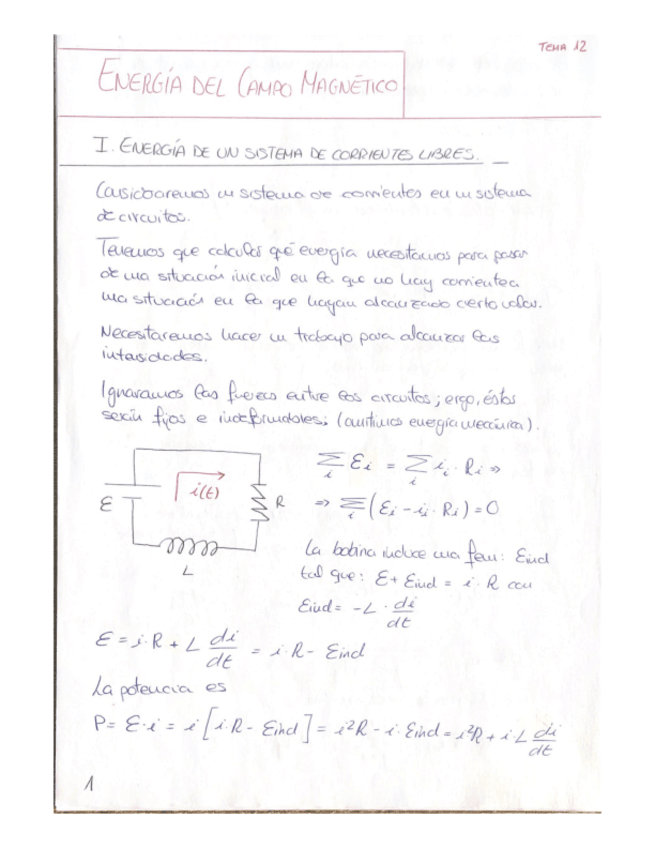 TEMA 12
ENERGÍA DEL CAMPO MAGNÉTICO
I. ENERGÍA DE UN SISTEMA DE CORRIENTES LIBRES.
Consideraremos un sistema de corrientes en un sistema
de circuitos.
Tenemos que calcular qué energía necesitamos para pasar
de una situación inicial en la que no hay corriente a
una situación en la que hayan alcanzado cierto valor.
Necesitaremos hacer un trabajo para alcanzar las
intensidades.
Ignoramos las fuerzas entre los circuitos; ergo, éstos
serán fijos e indeformables; (omitimos energía mecánica).
ε
i(t)
R
L
∑i εi = ∑i ii · Ri ⇒
⇒ ∑i (εi - ii · Ri) = 0
La bobina induce una fem: εind
tal que: ε + εind = i · R con
εind = -L · di/dt
ε = i · R + L di/dt = i · R - εind
La potencia es
P = ε · i = i [i · R - εind] = i²R - i · εind = i²R + i · L di/dt
1